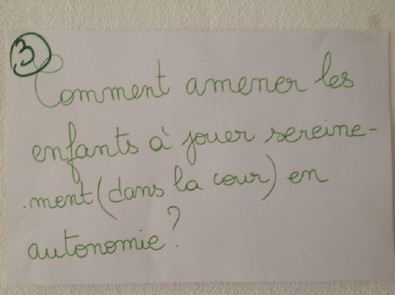 3
Comment amener les
enfants à jouer sereine-
-ment (dans la cour) en
autonomie?